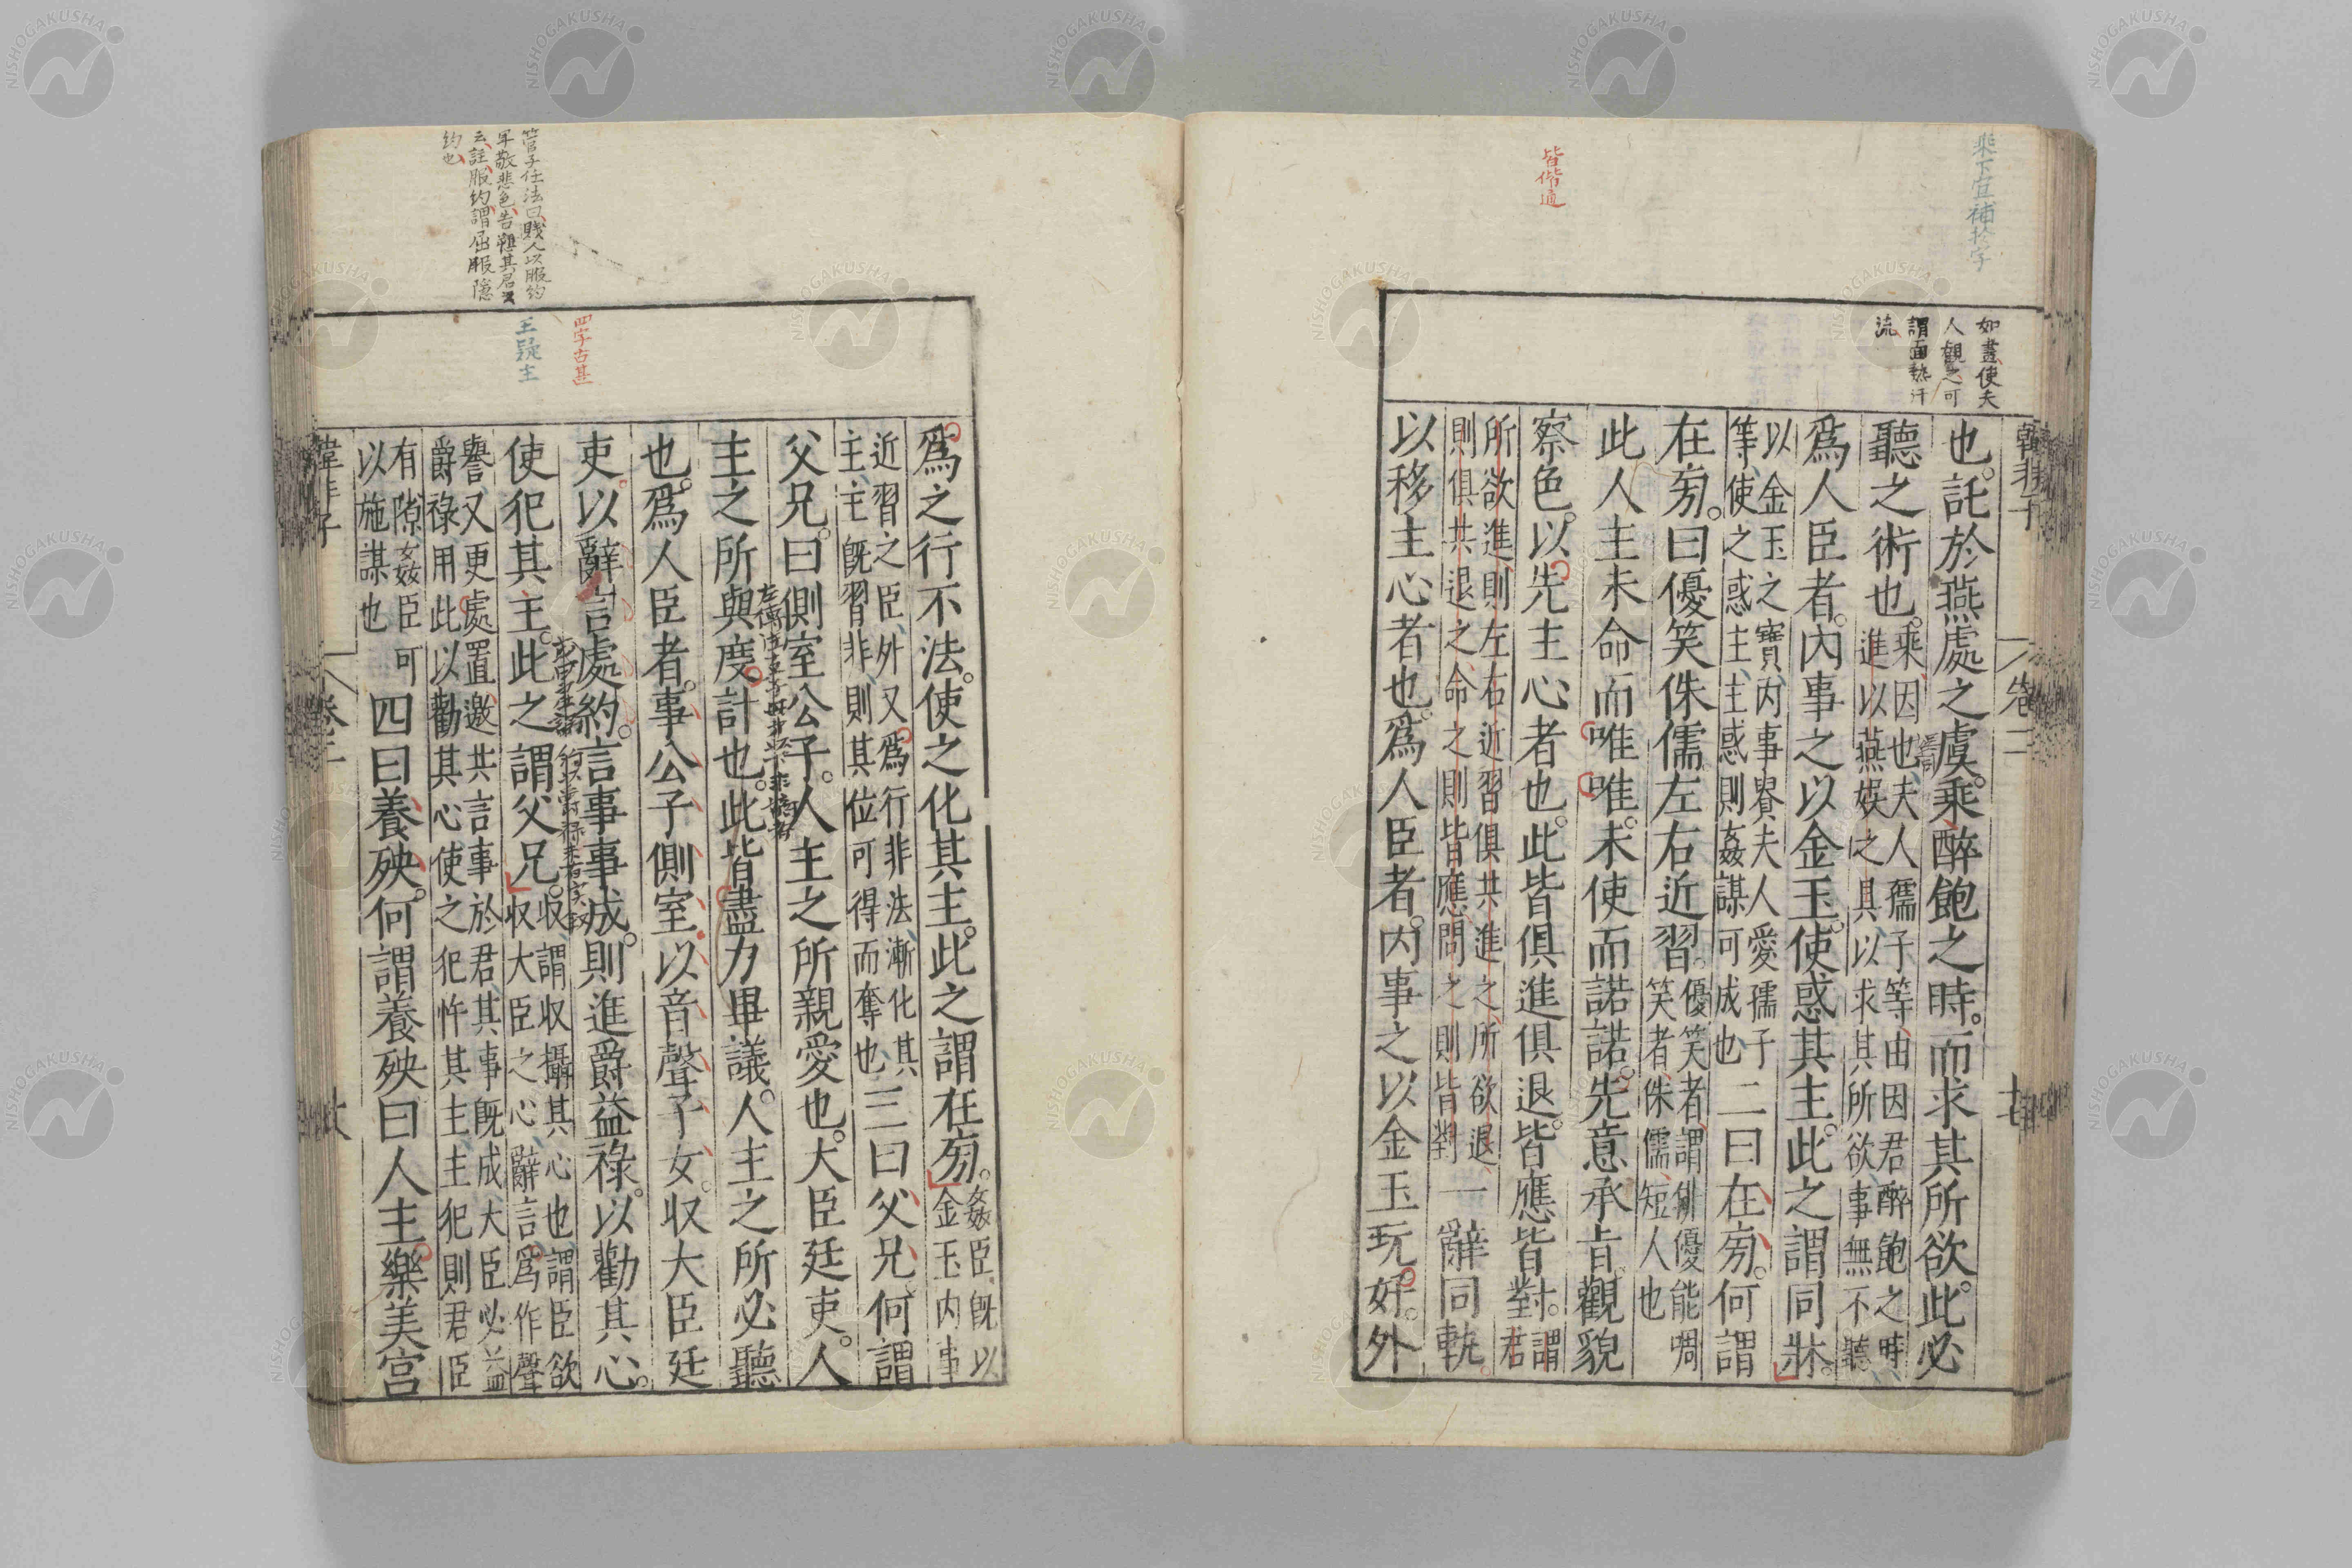 乘下宜補於字
皆偕通
如晝使夫
人觀之可
謂面熱汗
流
韓非子
卷二
也。託於燕處之虞。乘醉飽之時。而求其所欲。此必
聽之術也。乘、因也、夫人孺子等、由因君醉飽之時
進以燕娛之具、以求其所欲、事無不聽、
爲人臣者。內事之以金玉。使惑其主。此之謂同牀。
以金玉之寶、內事賏夫人愛孺子
等、使之惑主、主惑則姦謀可成也、二曰在旁。何謂
在旁。曰優笑侏儒。左右近習。優笑者、謂俳優能啁
笑者、侏儒、短人也
此人主未命而唯唯。未使而諾諾。先意承旨。觀貌
察色。以先主心者也。此皆俱進俱退。皆應皆對。謂
君
所欲進、則左右近習俱共進之、所欲退、
則俱共退之、命之則皆應、問之則皆對一辭同軌。
以移主心者也。爲人臣者。內事之以金玉玩好。外
爲之行不法。使之化其主。此之謂在旁。姦臣、既以
金玉內事
近習之臣、外又爲行非法、漸化其
主、主既習非、則其位可得而奪也、三曰父兄。何謂
父兄。曰側室公子。人主之所親愛也。大臣廷吏。人
主之所與度計也。此皆盡力畢議。人主之所必聽
也。爲人臣者。事公子側室。以音聲子女。収大臣廷
吏。以辭言處約。言事事成。則進爵益祿。以勸其心。
使犯其主。此之謂父兄。収、謂収攝其心也、謂臣欲
収大臣之心、辭言爲作聲
譽、又更處置邀共言事於君、其事既成、大臣必益
爵祿、用此以勸其心使之犯忤其主、主犯則君臣
有隙、姦臣可
以施謀也四曰養殃。何謂養殃曰人主樂美宫
韓非子
卷二
四字古甚
王疑主
管子任法曰、賤人以服約
卑敬悲色告愬其君
云、註、服約、謂屈服隱
約也